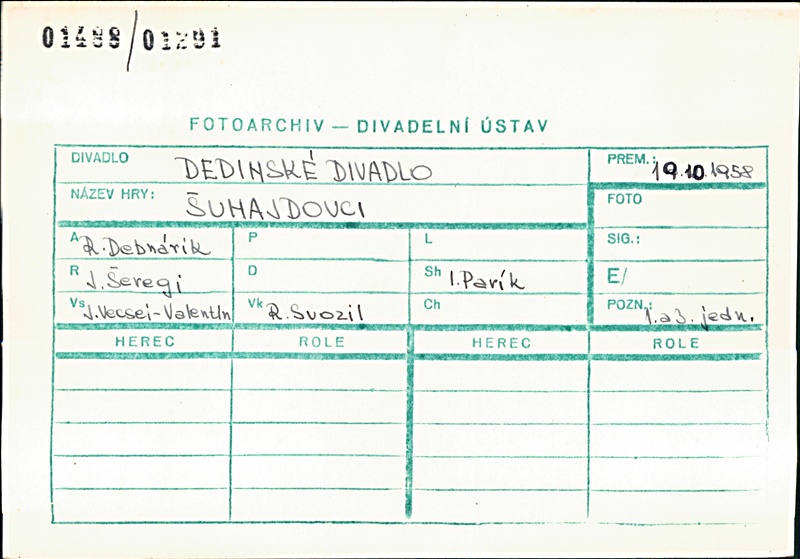 01488/01291
FOTOARCHIV — DIVADELNÍ ÚSTAV
DIVADLO DEDINSKÉ DIVADLO PREM.: 19.10.1958
NÁZEV HRY: ŠUHAJDOVCI FOTO
A R. Debnárik P L SIG.:
R J. Šeregi D Sh I. Parík E/
Vs J. Vecsei-Valentín Vk R. Svozil Ch POZN.: 1. a 3. jedn.
HEREC ROLE HEREC ROLE